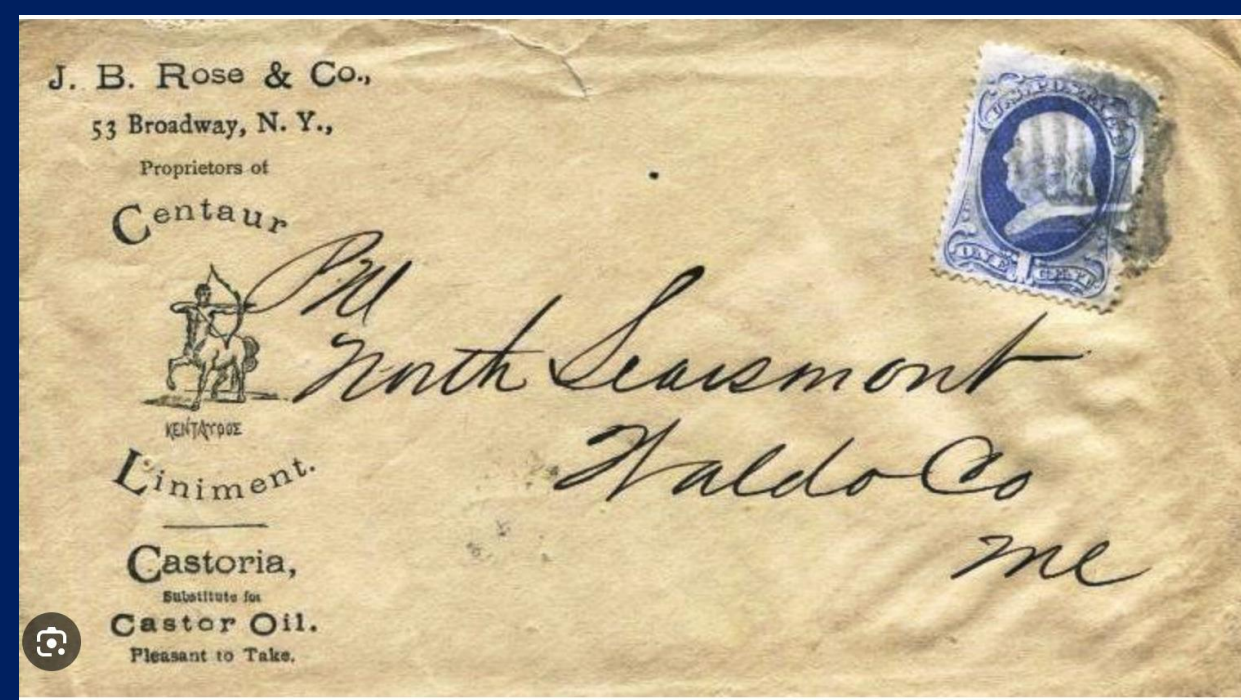 J. B. Rose & Co.,
53 Broadway, N. Y.,
Proprietors of
Centaur
ΚΕΝΤΑΥΡΟΣ
Liniment.
Castoria,
Substitute for
Castor Oil.
Pleasant to Take.
U.S. POSTAGE
ONE CENT
PM
North Searsmont
Waldo Co
Me